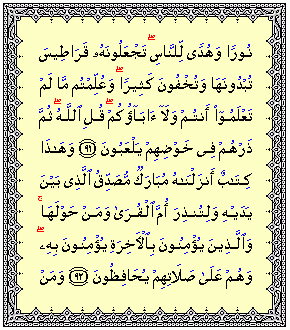 نُورًا وَهُدًى لِّلنَّاسِ ۖ تَجْعَلُونَهُۥ قَرَاطِيسَ
تُبْدُونَهَا وَتُخْفُونَ كَثِيرًا ۖ وَعُلِّمْتُم مَّا لَمْ
تَعْلَمُوٓا۟ أَنتُمْ وَلَآ ءَابَآؤُكُمْ ۖ قُلِ ٱللَّهُ ۖ ثُمَّ
ذَرْهُمْ فِى خَوْضِهِمْ يَلْعَبُونَ ﴿٩١﴾ وَهَٰذَا
كِتَٰبٌ أَنزَلْنَٰهُ مُبَارَكٌ مُّصَدِّقُ ٱلَّذِى بَيْنَ
يَدَيْهِ وَلِتُنذِرَ أُمَّ ٱلْقُرَىٰ وَمَنْ حَوْلَهَا ۚ
وَٱلَّذِينَ يُؤْمِنُونَ بِٱلْءَاخِرَةِ يُؤْمِنُونَ بِهِۦ ۖ
وَهُمْ عَلَىٰ صَلَاتِهِمْ يُحَافِظُونَ ﴿٩٢﴾ وَمَنْ